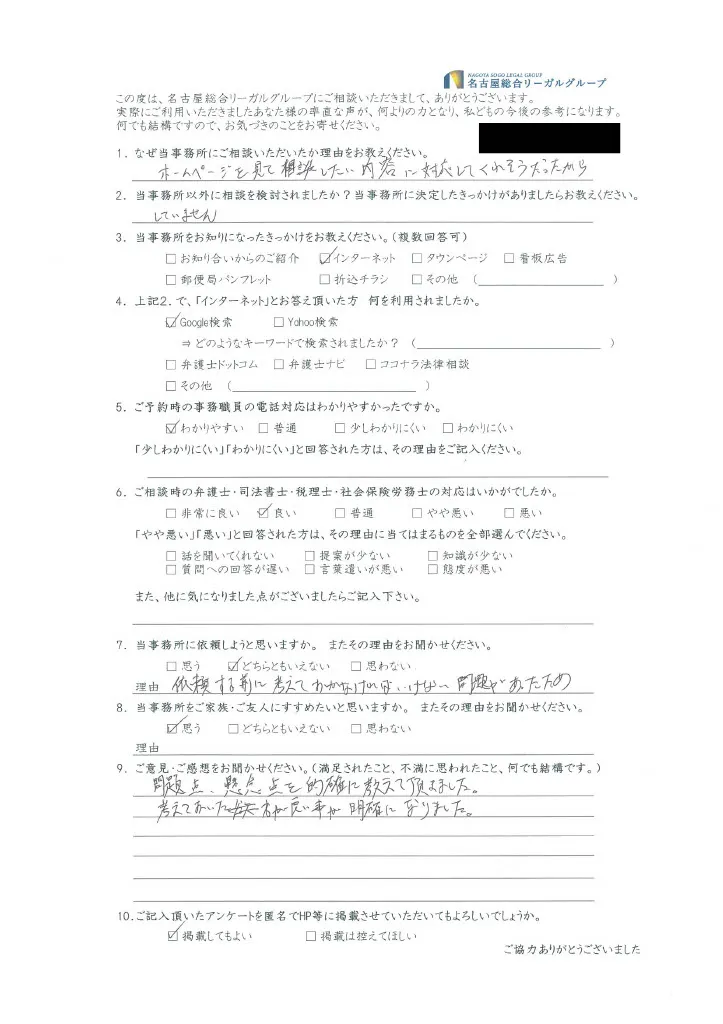 NAGOYA SOGO LEGAL GROUP
名古屋総合リーガルグループ
この度は、名古屋総合リーガルグループにご相談いただきまして、ありがとうございます。
実際にご利用いただきましたあなた様の率直な声が、何よりの力となり、私どもの今後の参考になります。
何でも結構ですので、お気づきのことをお寄せください。
1. なぜ当事務所にご相談いただいたか理由をお教えください。
ホームページを見て相談したい内容に対応してくれそうだったから
2. 当事務所以外に相談を検討されましたか？当事務所に決定したきっかけがありましたらお教えください。
していません
3. 当事務所をお知りになったきっかけをお教えください。（複数回答可）
□ お知り合いからのご紹介 ☑インターネット □ タウンページ □ 看板広告
□ 郵便局パンフレット □ 折込チラシ □ その他 （ ）
4. 上記２．で、「インターネット」とお答え頂いた方 何を利用されましたか。
☑Google検索 □ Yahoo検索
⇒ どのようなキーワードで検索されましたか？ （ ）
□ 弁護士ドットコム □ 弁護士ナビ □ ココナラ法律相談
□ その他 （ ）
5. ご予約時の事務職員の電話対応はわかりやすかったですか。
☑わかりやすい □ 普通 □ 少しわかりにくい □ わかりにくい
「少しわかりにくい」「わかりにくい」と回答された方は、その理由をご記入ください。
6. ご相談時の弁護士・司法書士・税理士・社会保険労務士の対応はいかがでしたか。
□ 非常に良い ☑良い □ 普通 □ やや悪い □ 悪い
「やや悪い」「悪い」と回答された方は、その理由に当てはまるものを全部選んでください。
□ 話を聞いてくれない □ 提案が少ない □ 知識が少ない
□ 質問への回答が遅い □ 言葉遣いが悪い □ 態度が悪い
また、他に気になりました点がございましたらご記入下さい。
7. 当事務所に依頼しようと思いますか。 またその理由をお聞かせください。
□ 思う ☑どちらともいえない □ 思わない
理由 依頼する前に考えておかなければいけない問題があったため
8. 当事務所をご家族・ご友人にすすめたいと思いますか。 またその理由をお聞かせください。
☑思う □どちらともいえない □ 思わない
理由
9. ご意見・ご感想をお聞かせください。（満足されたこと、不満に思われたこと、何でも結構です。）
問題点、懸念点を的確に教えて頂きました。
考えておいた方が良い事が明確になりました。
10.ご記入頂いたアンケートを匿名でHP等に掲載させていただいてもよろしいでしょうか。
☑ 掲載してもよい □ 掲載は控えてほしい
ご協力ありがとうございました